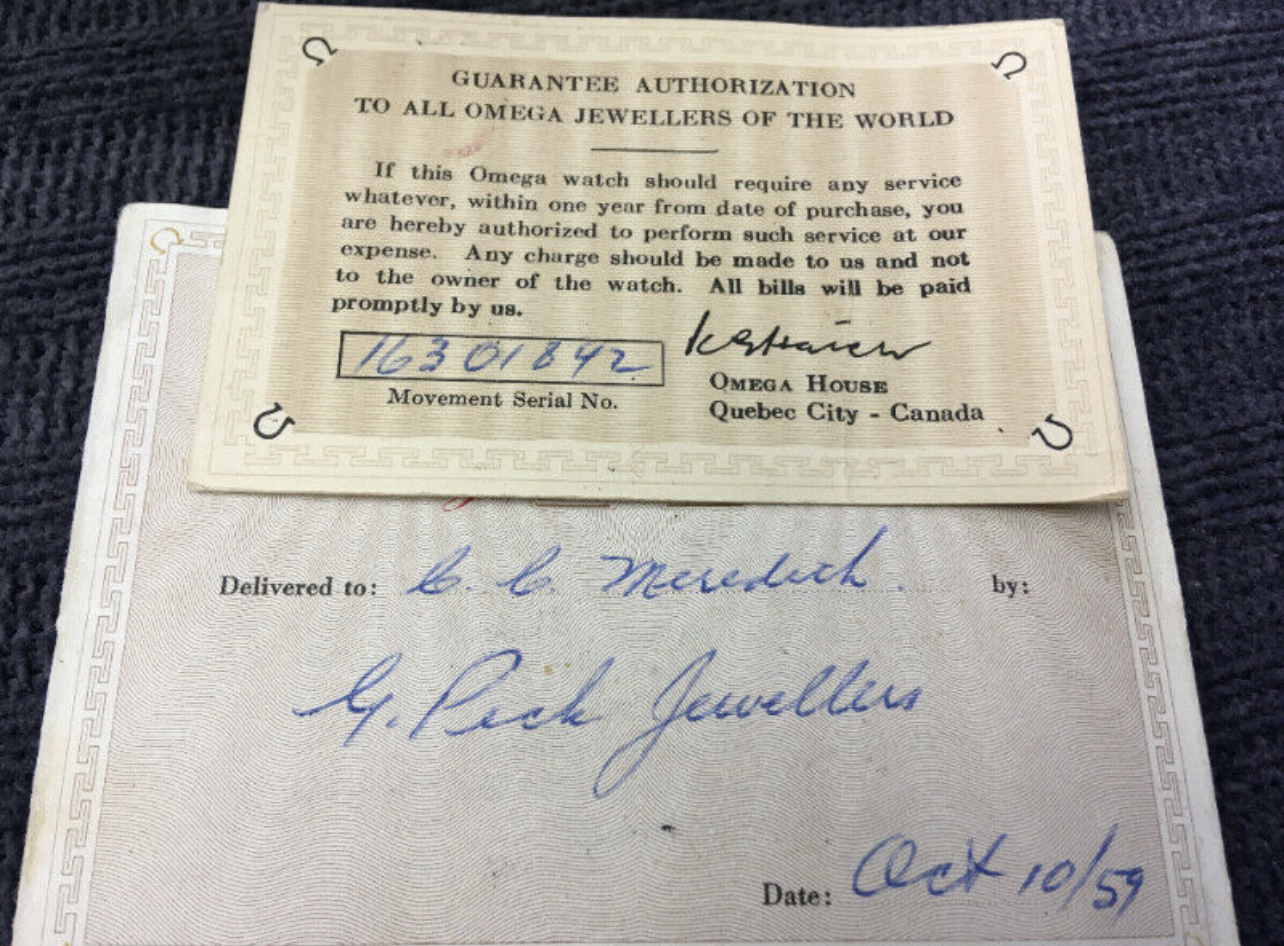 GUARANTEE AUTHORIZATION
TO ALL OMEGA JEWELLERS OF THE WORLD
If this Omega watch should require any service
whatever, within one year from date of purchase, you
are hereby authorized to perform such service at our
expense. Any charge should be made to us and not
to the owner of the watch. All bills will be paid
promptly by us.
16301842
Movement Serial No.
OMEGA HOUSE
Quebec City - Canada
Delivered to: C. C. Meredith. by:
G. Peck Jewellers
Date: Oct 10/59